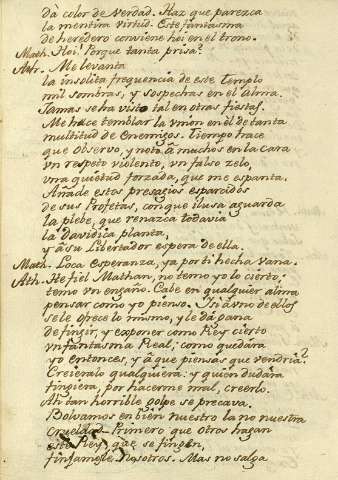 dà color de verdad. Haz que parezca
la mentira virtud. Este fantasma
de heredero conviene hoi en el trono.
Math. Hoi! Porque tanta prisa?
Athr. Me levanta
la insolita frequencia de este Templo
mil sombras, y sospechas en el Alma.
Jamas se ha visto tal en otras fiestas.
Me hace temblar la vnion en èl de tanta
multitud de Enemigos. Tiempo hace
que observo, y notà à muchos en la cara
vn respeto violento, vn falso zelo,
vna quietud forzada, que me espanta.
Añade estos presagios esparcidos
de sus Profetas, conque ilusa aguarda
la plebe, que renazca todavia
la Davidica planta,
y à su Libertador espera de ella.
Math. Loca esperanza, ya por ti hecha vana.
Ath. He fiel Mathan, no temo yo lo cierto;
temo vn engaño. Cabe en qualquier alma
pensar como yo pienso. Si à vno de ellos
se le ofrece lo mismo, y le dà gana
de fingir, y exponer como Rey cierto
vn fantasma Real; como quedàra
yo entonces, y à que piensas que vendria?
Creieralo qualquiera: y quien dudàra
fingiera, por hacerme mal, creerlo.
Ah tan horrible golpe se precava.
Bolvamos en bien nuestro la no nuestra
crueldad. Primero que otros hagan
este Rey, que se fingen,
finjamosle nosotros. Mas no salga